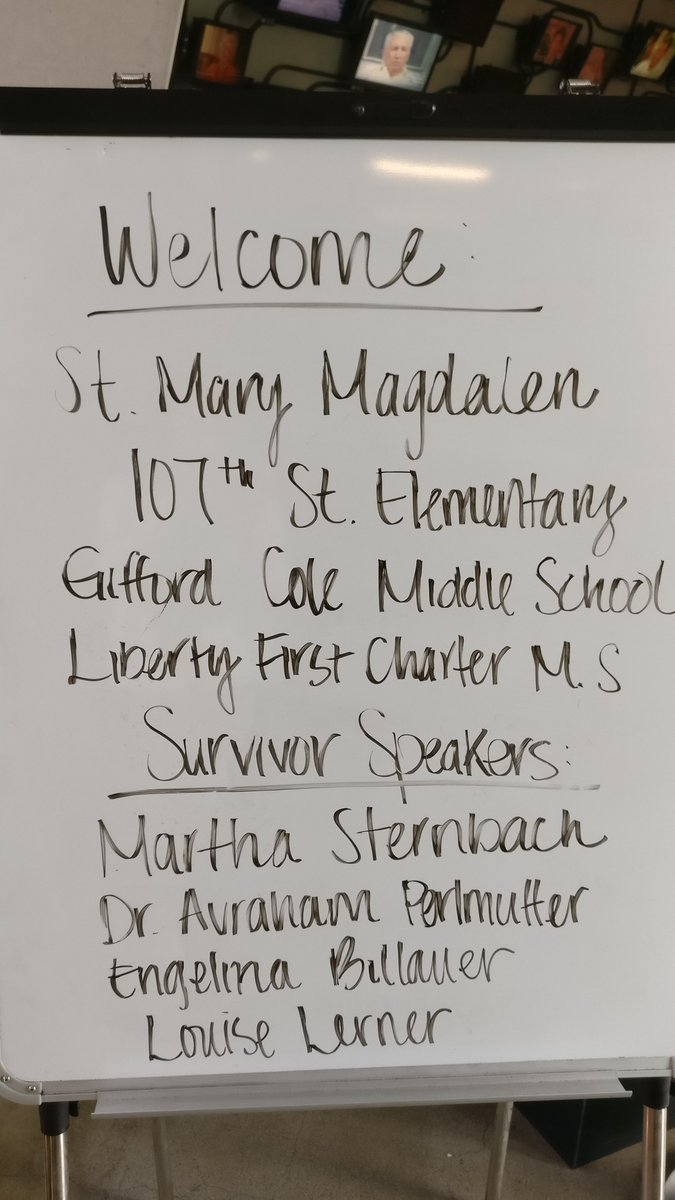 Welcome:
St. Mary Magdalen
107th St. Elementary
Gifford Cole Middle School
Liberty First Charter M.S
Survivor Speakers:
Martha Sternbach
Dr. Avraham Perlmutter
Engelina Billauer
Louise Lerner